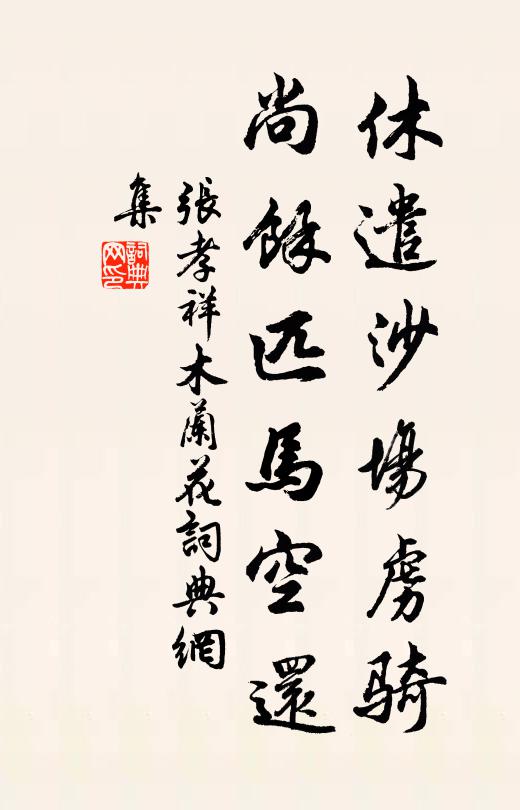 休遣沙場虜騎
尚餘匹馬空還
張孝祥木蘭花詞典網
集
詞典網印